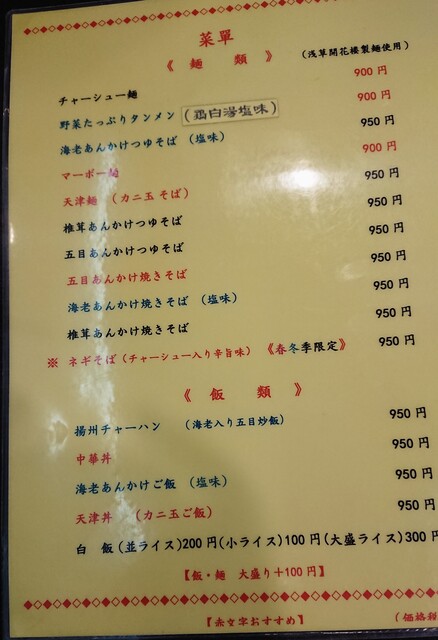 菜單
《 麺 類 》 (浅草開花楼製麺使用)
チャーシュー麺 900 円
野菜たっぷりタンメン (鶏白湯塩味) 900 円
海老あんかけつゆそば (塩味) 950 円
マーボー麺 900 円
天津麺 (カニ玉そば) 950 円
椎茸あんかけつゆそば 950 円
五目あんかけつゆそば 950 円
五目あんかけ焼きそば 950 円
海老あんかけ焼きそば (塩味) 950 円
椎茸あんかけ焼きそば 950 円
※ ネギそば(チャーシュー入り辛旨味) 《春冬季限定》 950 円
《 飯 類 》
揚州チャーハン (海老入り五目炒飯) 950 円
中華丼 950 円
海老あんかけご飯 (塩味) 950 円
天津丼 (カニ玉ご飯) 950 円
白 飯(並ライス)200 円(小ライス)100 円(大盛ライス)300 円
【飯・麺 大盛り+100 円】
【赤文字おすすめ】 (価格